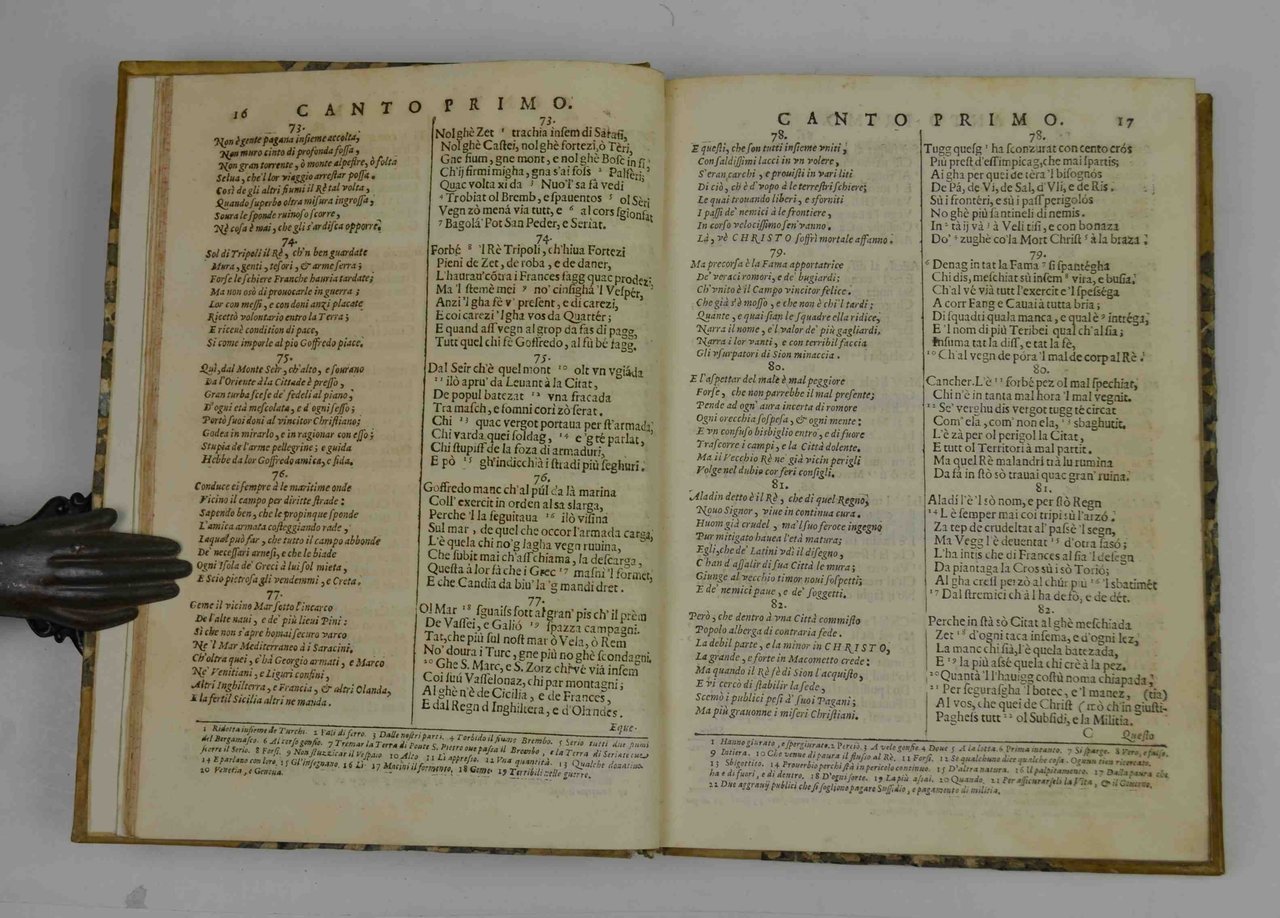 16 CANTO PRIMO.
73.
Non è gente pagana insieme accolta,
Non muro cinto di profonda fossa,
Non gran torrente, ò monte alpestre, ò folta
Selua, che'l lor viaggio arrestar possa.
Così de gli altri fiumi il Rè tal volta,
Quando superbo oltra misura ingrossa,
Soura le sponde ruinoso scorre,
Nè cosa è mai, che gli s'ardisca opporre.
74.
Sol di Tripoli il Rè, ch'n ben guardate
Mura, genti, tesori, & arme serra;
Forse le schiere Franche hauria tardate;
Ma non osò di prouocarle in guerra;
Lor con messi, e con doni anzi placate
Ricettò volontario entro la Terra;
E riceuè condition di pace,
Sì come imporle al pio Goffredo piace.
75.
Quì, dal Monte Seir, ch'alto, e sourano
Da l'Oriente à la Cittade è presso,
Gran turba scese de' fedeli al piano,
D'ogni età mescolata, e d'ogni sesso;
Portò suoi doni al vincitor Christiano;
Godea in mirarlo, e in ragionar con esso;
Stupia de l'arme pellegrine; e guida
Hebbe da lor Goffredo amica, e fida.
76.
Conduce ei sempre à le maritime onde
Vicino il campo per diritte strade:
Sapendo ben, che le propinque sponde
L'amica armata costeggiando rade,
Laqual può far, che tutto il campo abbonde
De' necessari arnesi, e che le biade
Ogni Isola de' Greci à lui sol mieta,
E Scio pietrosa gli vendemmi, e Creta.
77.
Geme il vicino Mar sotto l'incarco
De l'alte naui, e de' più lieui Pini:
Sì che non s'apre homai securo varco
Ne'l Mar Mediterraneo à i Saracini.
Ch'oltra quei, c'hà Georgio armati, e Marco
Ne' Venitiani, e Liguri confini,
Altri Inghilterra, e Francia, & altri Olanda,
E la fertil Sicilia altri ne manda.
73.
Nol ghè Zet 1 trachia insem di Sarasi,
Nol ghè Castei, nol ghè fortezi, ò Téri,
Gne fium, gne mont, e nol ghè Bosc in si
Ch'ij firmi migha, gna s'ai foss 2 Palséri;
Quac volta xi da 3 Nuo'l sa fà vedi
4 Trobiat ol Bremb, e spauentos 5 ol Séri
Vegn zò menà via tutt, e 6 al cors sgionfat
7 Bagolá' Pot San Peder, e Seriat.
74.
Forbé 8 'l Rè Tripoli, ch'hiua Fortezi
Pieni de Zet, de roba, e de daner,
L'hauraù côtra i Frances fagg quac prodez:
Ma 'l steme mei 9 no' cinsighà 'l Vespér,
Anzi 'l gha fè v' present, e di carezi,
E coi carezi 'l gha vos da Quartér;
E quand ass vegn al grop da fas di pagg,
Tutt quel chi fè Goffredo, al fù bé fagg.
75.
Dal Seir ch'è quel mont 10 olt vn vgiáda
11 ilò apru' da Leuant à la Citat,
De popul batezat 12 vna fracada
Tra masch, e fomni corì zò ferat.
Chi 13 quac vergot portaua per st'armada,
Chi varda quei soldag, 14 e 'g tè parlat,
Chi stupiss de la foza di armaduri,
E pò 15 gh'indicchià i stradi più seghuri.
76.
Goffredo manc ch'al púl da là marina
Coll' exercit in orden al sa slarga,
Perche 'l la seguitaua 16 ilò visina
Sul mar, de quel che occor l'armada carga,
L'è quela chi no'g lagha vegn ruuina,
Che subit mai ch'ass chiama, la descarga,
Questa à lor fà che i Grec 17 masni 'l formet,
E che Candia da biu' la 'g mandi dret.
77.
Ol Mar 18 sguaiss sott al gran' pis ch'il prèm
De Vassei, e Galiò 19 spazza campagni.
Tat, che più sul nost mar ò Vela, ò Rem
No' doura i Turc, gne più no ghè scondagni.
20 Ghe S. Marc, e S. Zorz chi vé vià insem
Coi suù Vasselonaz, chi par montagni;
Al ghè n è de Cicilia, e de Frances,
E dal Regn d Inghiltera, e d'Olandes.
Eque-
1 Ridotta insieme de Turchi. 2 Pali di ferro. 3 Dalle nostri parti. 4 Torbido il fiume Brembo. 5 Serio tutti due fiumi
del Bergamasco. 6 Al corso gonfio. 7 Tremar la Terra di Ponte S. Pietro oue passa il Brembo, e la Terra di Seriate oue
scorre il Serio. 8 Forsi. 9 Non stuzzicar il Vespaio 10 Alto 11 Lì appresso. 12 Vna quantità. 13 Qualche donatiuo.
14 E parlano con loro. 15 Gl'insegnano. 16 Lì 17 Macini il formento. 18 Geme 19 Terribili nelle guerre.
20 Venetia, e Genoua.
CANTO PRIMO. 17
78.
E questi, che son tutti insieme vniti,
Con saldissimi lacci in vn volere,
S'eran carchi, e prouisti in vari liti
Di ciò, ch'è d'vopo à le terrestri schiere;
Le quai trouando liberi, e sforniti
I passi de' nemici à le frontiere,
In corso velocissimo sen' vanno.
Là, vè CHRISTO soffrì mortale affanno.
79.
Ma precorsa è la Fama apportatrice
De' veraci romori, e de' bugiardi:
Ch'vnito è il Campo vincitor felice.
Che già s'è mosso, e che non è chi'l tardi;
Quante, e quai sian le squadre ella ridice,
Narra il nome, e'l valor de' più gagliardi.
Narra i lor vanti, e con terribil faccia
Gli vsurpatori di Sion minaccia.
80.
E l'aspettar del male è mal peggiore
Forse, che non parrebbe il mal presente;
Pende ad ogn' aura incerta di romore
Ogni orecchia sospesa, & ogni mente:
E vn confuso bisbiglio entro, e di fuore
Trascorre i campi, e la Città dolente.
Ma il Vecchio Rè ne' già vicin perigli
Volge nel dubio cor feri consigli.
81.
Aladin detto è il Rè, che di quel Regno,
Nouo Signor, viue in continua cura.
Huom già crudel, ma'l suo feroce ingegno
Pur mitigato hauea l'età matura;
Egli, che de' Latini vdì il disegno,
C'han d'assalir di sua Città le mura;
Giunge al vecchio timor noui sospetti;
E de' nemici paue, e de' soggetti.
82.
Però, che dentro à vna Città commisto
Popolo alberga di contraria fede.
La debil parte, e la minor in CHRISTO,
La grande, e forte in Macometto crede:
Ma quando il Rè fè di Sion l'acquisto,
E vi cercò di stabilir la sede,
Scemò i publici pesi d' suoi Pagani;
Ma più grauonne i miseri Christiani.
78.
Tugg quesg 1 ha sconzurat con cento crós
Più prest d'ess impicag, che mai spartis;
Ai gha per quei de tèra 'l bisognós
De Pá, de Vi, de Sal, d' Vli, e de Ris.
Sù i frontéri, e sù i pass perigolós
No ghè più santineli di nemis.
In 2 tà ij và 3 à Veli tisi, e con bonaza
Do' 4 zughè co'la Mort Christ 5 à la braza.
79.
6 Denag in tat la Fama 7 si spantégha
Chi dis, meschiat sù insem 8 vira, e busia,
Ch'al vé vià tutt l'exercit e 'l spességa
A corr Fang e Cauai à tutta bria;
Di squadri quala manca, e qual è 9 intréga,
E 'l nom di più Teribei qual ch'al sia;
Insuma tat la diss', e tat la fè,
10 Ch'al vegn de póra 'l mal de corp al Rè.
80.
Cancher. L'è 11 forbé pez ol mal spechiat,
Chi n'è in tanta mal hora 'l mal vegnit.
12 Se' verghu dis vergot tugg tè circat
Com' ela, com' non ela, 13 sbaghutit.
L'è zà per ol perigol la Citat,
E tutt ol Territori à mal partit.
Ma quel Rè malandrì trà lu rumina
Da fà in stò sò trauai quac gran' ruina.
81.
Aladì l'è 'l sò nom, e per stò Regn
14 L'è semper mai coi tripi sù l'arzó.
Za tep de crudeltat al' passè 'l segn,
Ma Vegg l'è deuentat 15 d'otra fasó;
L'ha intis che di Frances al sia 'l desegn
Da piantaga la Cros sù i sò Torió;
Al gha cress perzò al chúr piu 16 'l sbatimét
17 Dal stremici ch à l ha de fò, e de dét.
82.
Perche in stà sò Citat al ghè meschiada
Zet 18 d'ogni taca insema, e d'ogni lez,
La manc chi sià, l'è quela batezada,
E 19 la più assé quela chi crè à la pez.
20 Quantà 'l hauigg costù noma chiapada,
21 Per segurasgha 'l botec, e 'l manez, (tia)
Al vos, che quei de Christ (trò ch'in giusti-
Paghess tutt 22 ol Subsidi, e la Militia.
C Questo
1 Hanno giurato, e spergiurato. 2 Perciò. 3 A vele gonfie. 4 Doue 5 A la lotta. 6 Prima intanto. 7 Si sparge. 8 Vero, e falso.
9 Intiera. 10 Che venne di paura il flusso al Rè. 11 Forsi. 12 Se qualchuno dice qualche cosa. Ognun tien ricercato.
13 Sbigottito. 14 Prouerbio per chi stà in pericolo continuo. 15 D'altra natura. 16 Il palpitamento. 17 Dalla paura che
ha e di fuori, e di dentro. 18 D'ogni sorte. 19 La più assai. 20 Quando. 21 Per assicurarseli la Vita, & il Gouerno.
22 Due aggrauij publici che si sogliono pagare Sussidio, e pagamento di militia.